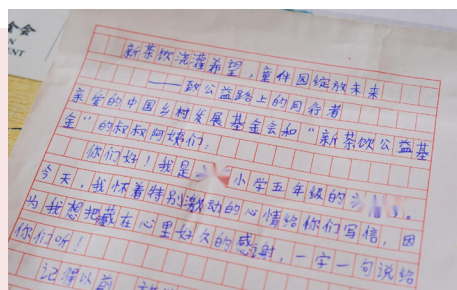 金会
MENT
新茶饮浇灌希望，童伴园绽放未来
——致公益路上的同行者
亲爱的中国乡村发展基金会和“新茶饮公益基
金”的叔叔阿姨们：
你们好！我是 小学五年级的
今天，我怀着特别激动的心情给你们写信，因
为我想把藏在心里好久的感谢，一字一句说给
你们听！
记得以前